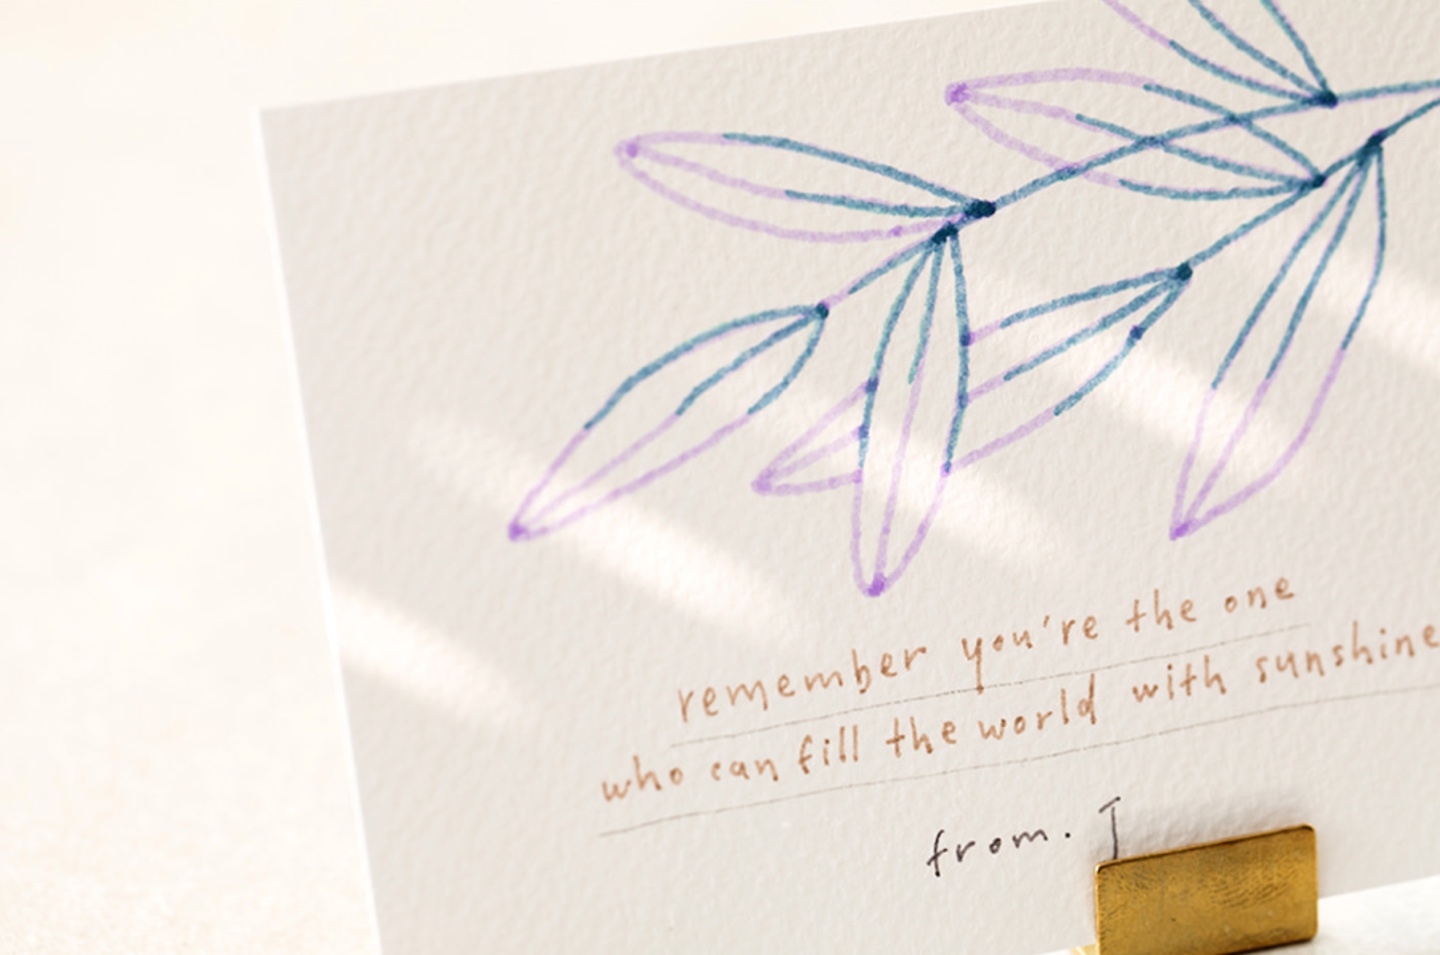 remember you're the one
who can fill the world with sunshine
from.